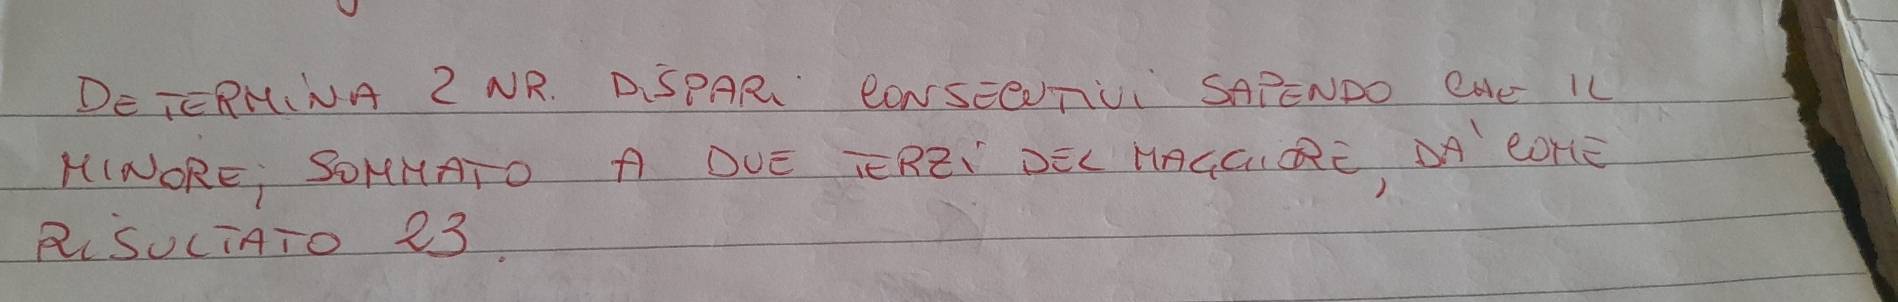 DETERMINA 2 NR. DISPARI CONSECUTIVI SAPENDO CHE IL
MINORE, SOMMATO A DUE TERZI DEL MAGGIORE, DA' COME
RISULTATO 23.